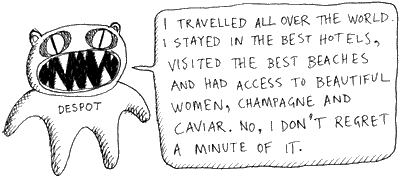 DESPOT
I TRAVELLED ALL OVER THE WORLD.
I STAYED IN THE BEST HOTELS,
VISITED THE BEST BEACHES
AND HAD ACCESS TO BEAUTIFUL
WOMEN, CHAMPAGNE AND
CAVIAR. NO, I DON'T REGRET
A MINUTE OF IT.